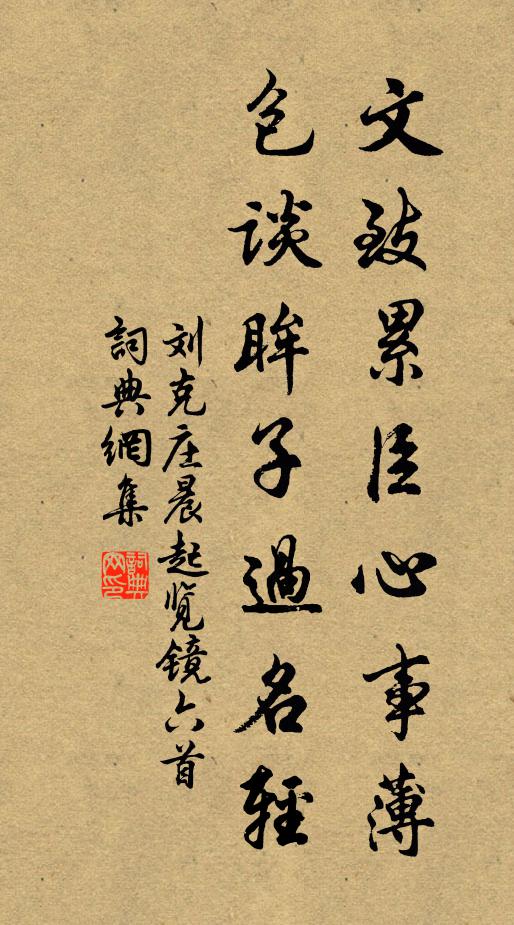 文致累臣心事薄
包談眸子過名輕
刘克庄晨起览镜六首
詞典網集
詞典网印